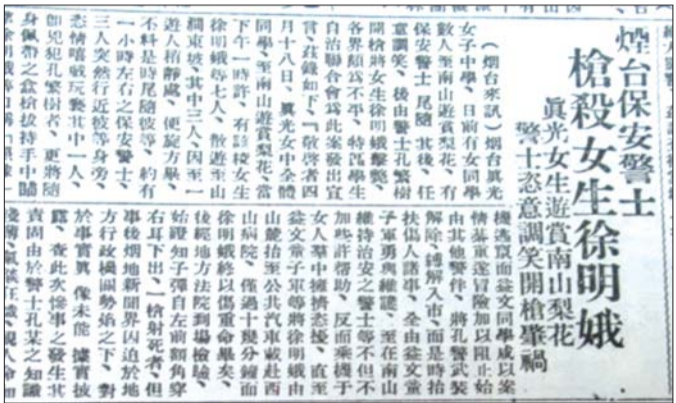 煙台保安警士
槍殺女生徐明娥
眞光女生遊賞南山梨花
警士恣意調笑開槍肇禍
（烟台來訊）烟台眞光
女子中學、日前有女同學
數人至南山遊賞梨花、有
保安警士尾隨其後、任
意調笑、後由警士孔繁樹
開槍將女生徐明娥擊斃、
各界頗爲不平、特 學生
自治聯合會爲此案發出宣
言、茲錄如下、「敬啓者四
月十八日、眞光女中全體
同學至南山遊賞梨花、當
下午一時許、有該校女生
徐明娥等七人、散遊至山
澗東坡、其中三人、因至一
遊人稍靜處、便旋方畢、
不料是時尾隨彼等、約有
一小時左右之保安警士、
三人突然行近彼等身旁、
恣情嘻戲玩褻其中一人、
卽兇犯孔繁樹者、更將隨
身佩帶之盒槍拔持手中瞄
機逃竄而益文同學咸以案
情綦重遂冒險加以阻止始
由其他警伴、將孔警武裝
解除、縛解入市、而是時抬
扶傷人諸事、全由益文童
子軍勇與維護、至在南山
維持治安之警士等不但不
加些許幫助、反而乘機于
女人羣中擁擠恣擾、直至
益文童子軍等將徐明娥由
山麓抬至公共汽車載赴西
山病院、僅過十幾分鐘而
徐明娥終以傷重命畢矣、
後經地方法院到塲檢驗、
始證知子彈自左前額角穿
右耳下出、一槍射死者、但
事後烟地新聞界因迫於地
方行政機關勢焰之下、對
於事實眞像未能據實披
露、查此次慘事之發生其
責固由於警士孔某之知識